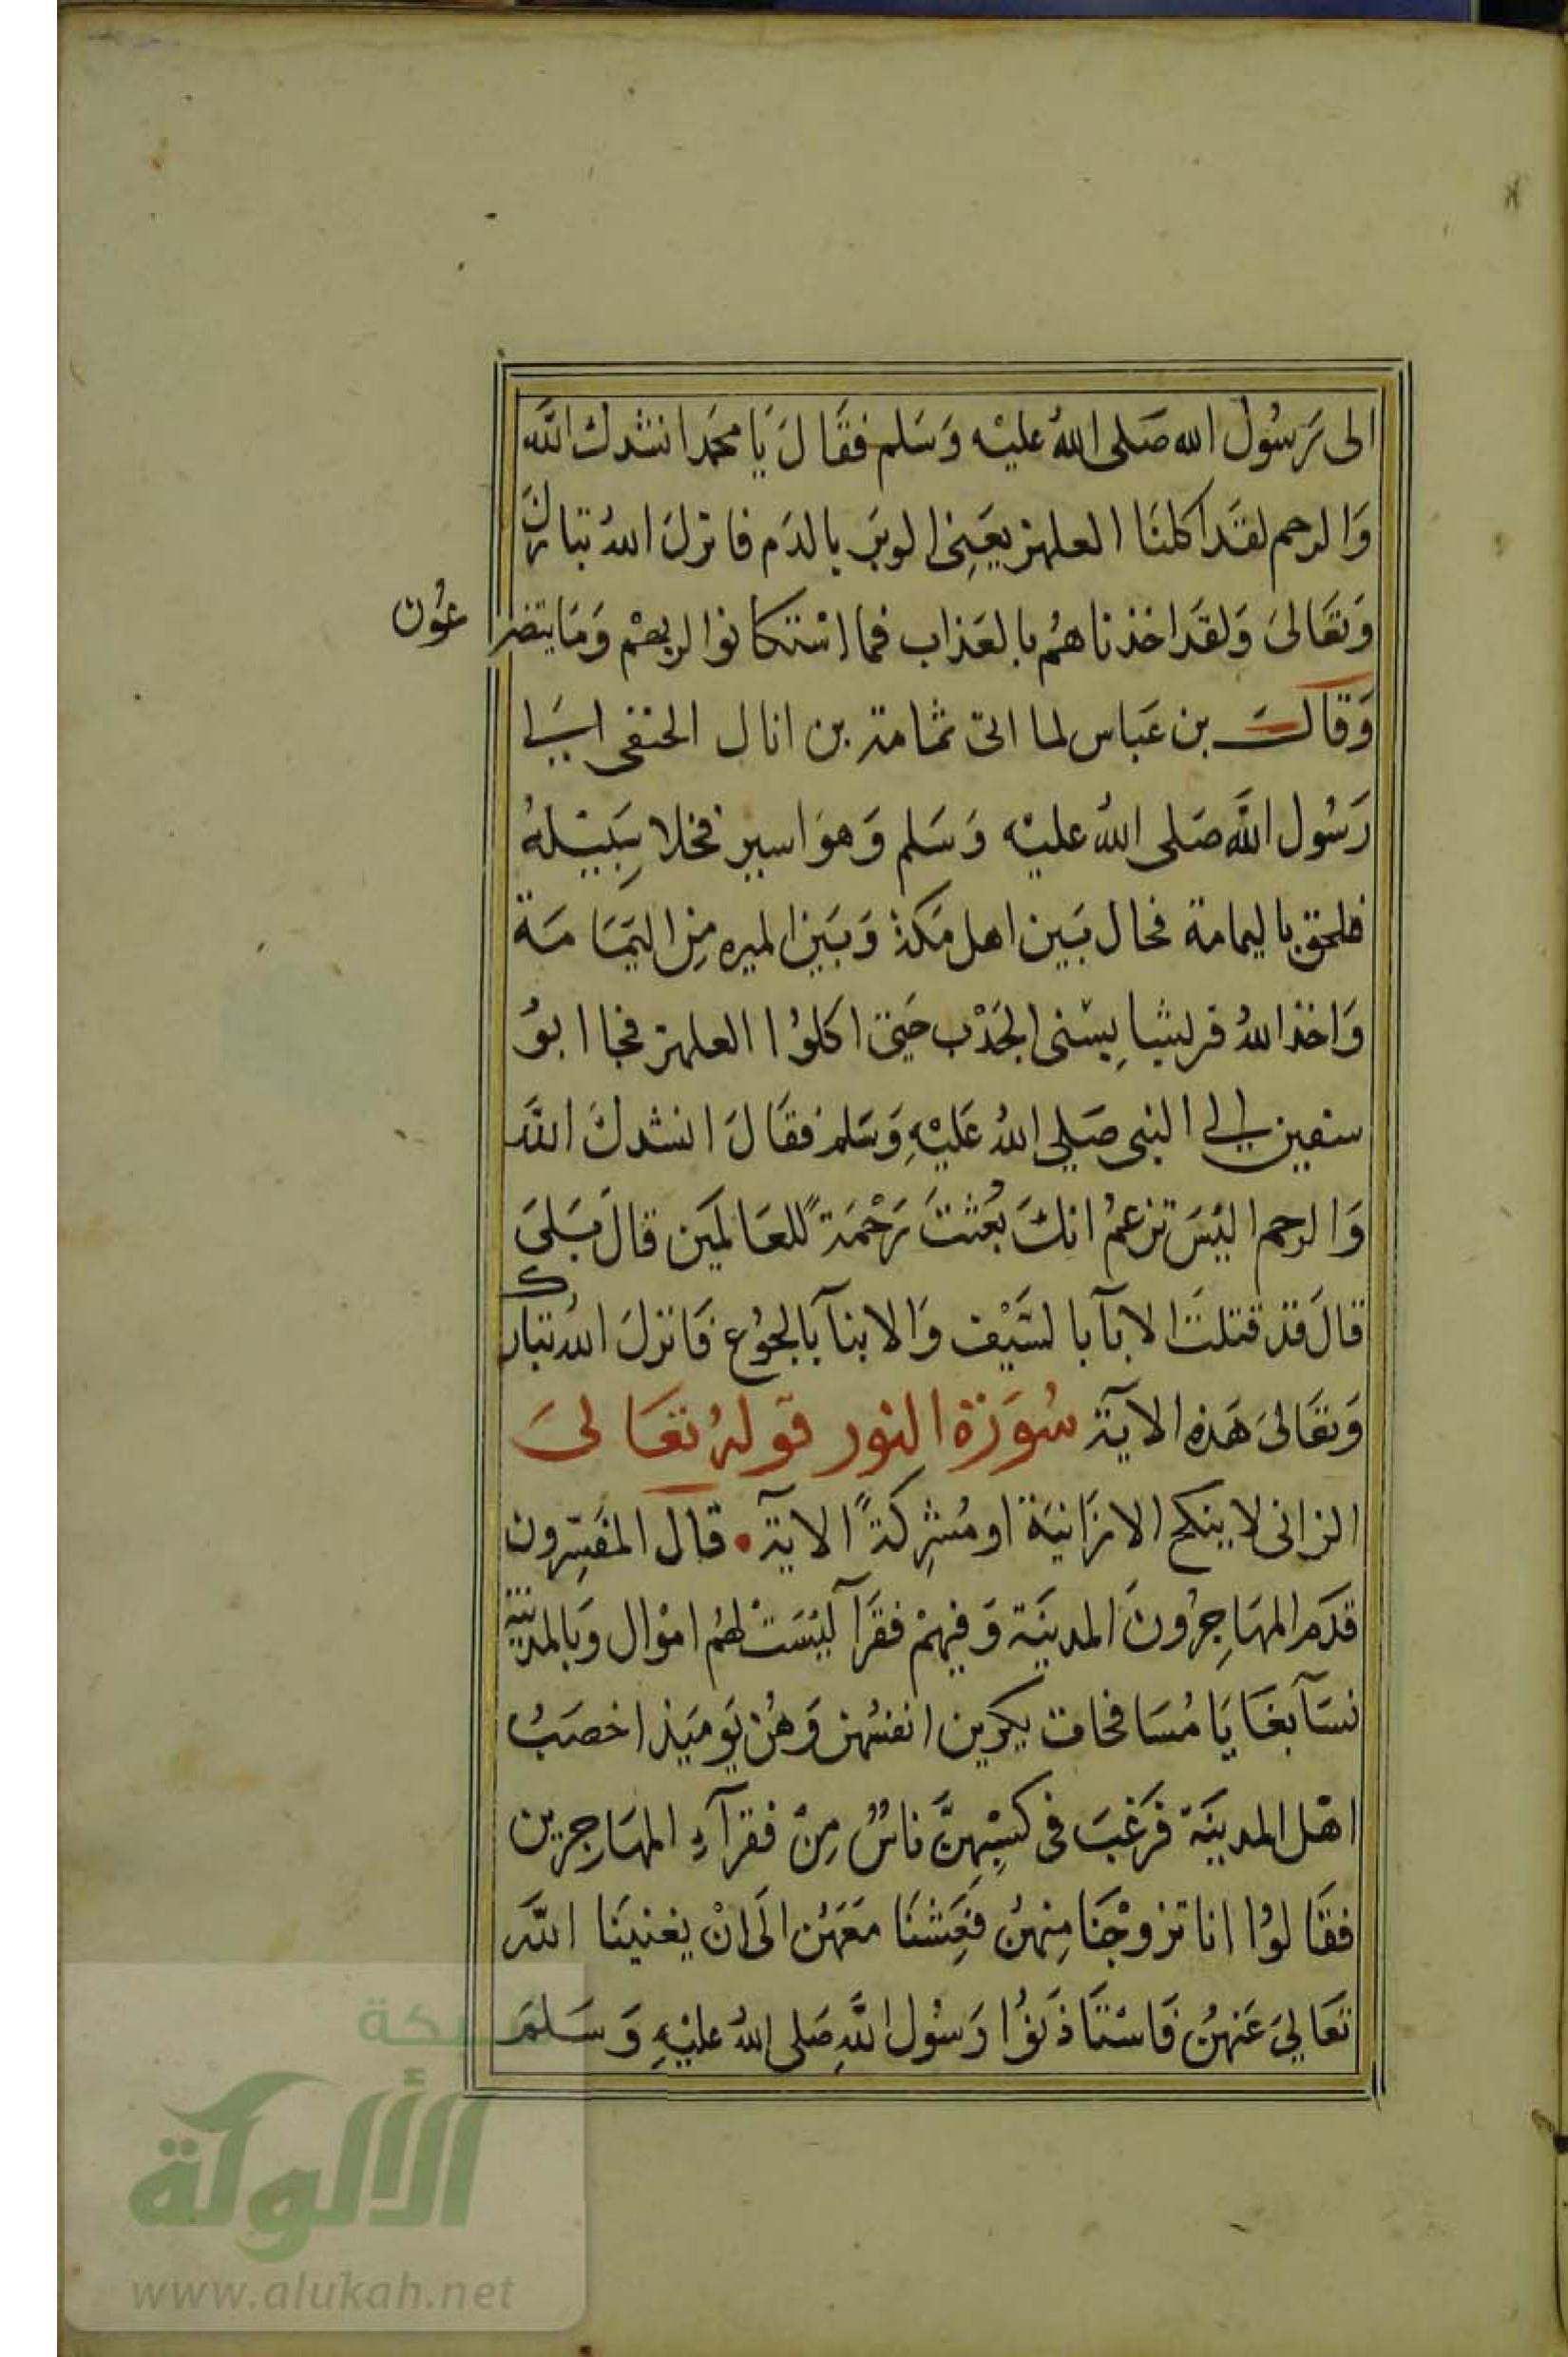 الى رَسُول الله صَلى اللهُ عليْه وَسَلم فقَالَ يَا محمَد انشدك اللهَ
وَالرحم لقَد اكلنَا العلهز يعَنِى الوبَر بالدَم فانزلَ اللهُ تبارك
وَتعَالىَ وَلقَد اخذناهُم بالعَذاب فما اسْتكانوا لربهمْ وَمَا يتضرعُون
وَقالَ بن عَباس لما اتى ثمامة بن اثال الحنفى اسَيرا
رَسُول اللهَ صَلى اللهُ عليْه وَسَلم وَهوَ اسير فخلا سَبيْلهُ
فلحق باليمامة فحال بَين اهل مَكة وَبَين الميره مِن اليَمَامَة
وَاخذ اللهُ قريشا بِسْنى الجَدْب حَتى اكلوُا العلهز فجاا ابوُ
سفين الى النبى صَلى اللهُ عَليْهِ وَسَلم فقَالَ انشدكَ اللهَ
وَالرحم اليْسَ تزعمُ انكَ بُعثتَ رَحْمَةً للعَالمَين قالَ بَلىَ
قالَ قد قتلتَ الابآ بالسَيْف وَالابنآ بالجوُع فَانزلَ اللهُ تبارك
وَتعَالىَ هَذه الآية سُوَرة النور قوله تعَالىَ
الزانى لا ينكح الا زَانيَة او مُشِركةً الاية • قال المفَسِّرون
قدَم المهَاجِرُونَ المدينَة وَفيهمْ فقَرآ ليْسَتْ لهُم امْوال وَبالمدينَة
نسَآ بغَايَا مُسَافحات يكرين انفسُهن وَهُن يَوميَذ اخصَبُ
اهْل المدينَة فرَغبَ فى كسْبِهِنَّ ناسٌ مِنْ فقرآءِ المهَاجِرين
فقَالوُا انا تزوجْنَا مِنهنُ فعِشنَا مَعَهُن الَى انْ يغنينَا اللهَ
تعَالىَ عَنهنُ فَاسْتَاذنوُا رَسُول اللهِ صَلى اللهُ عليْهِ وَسَلمَ
شبكة
الألوكة
www.alukah.net